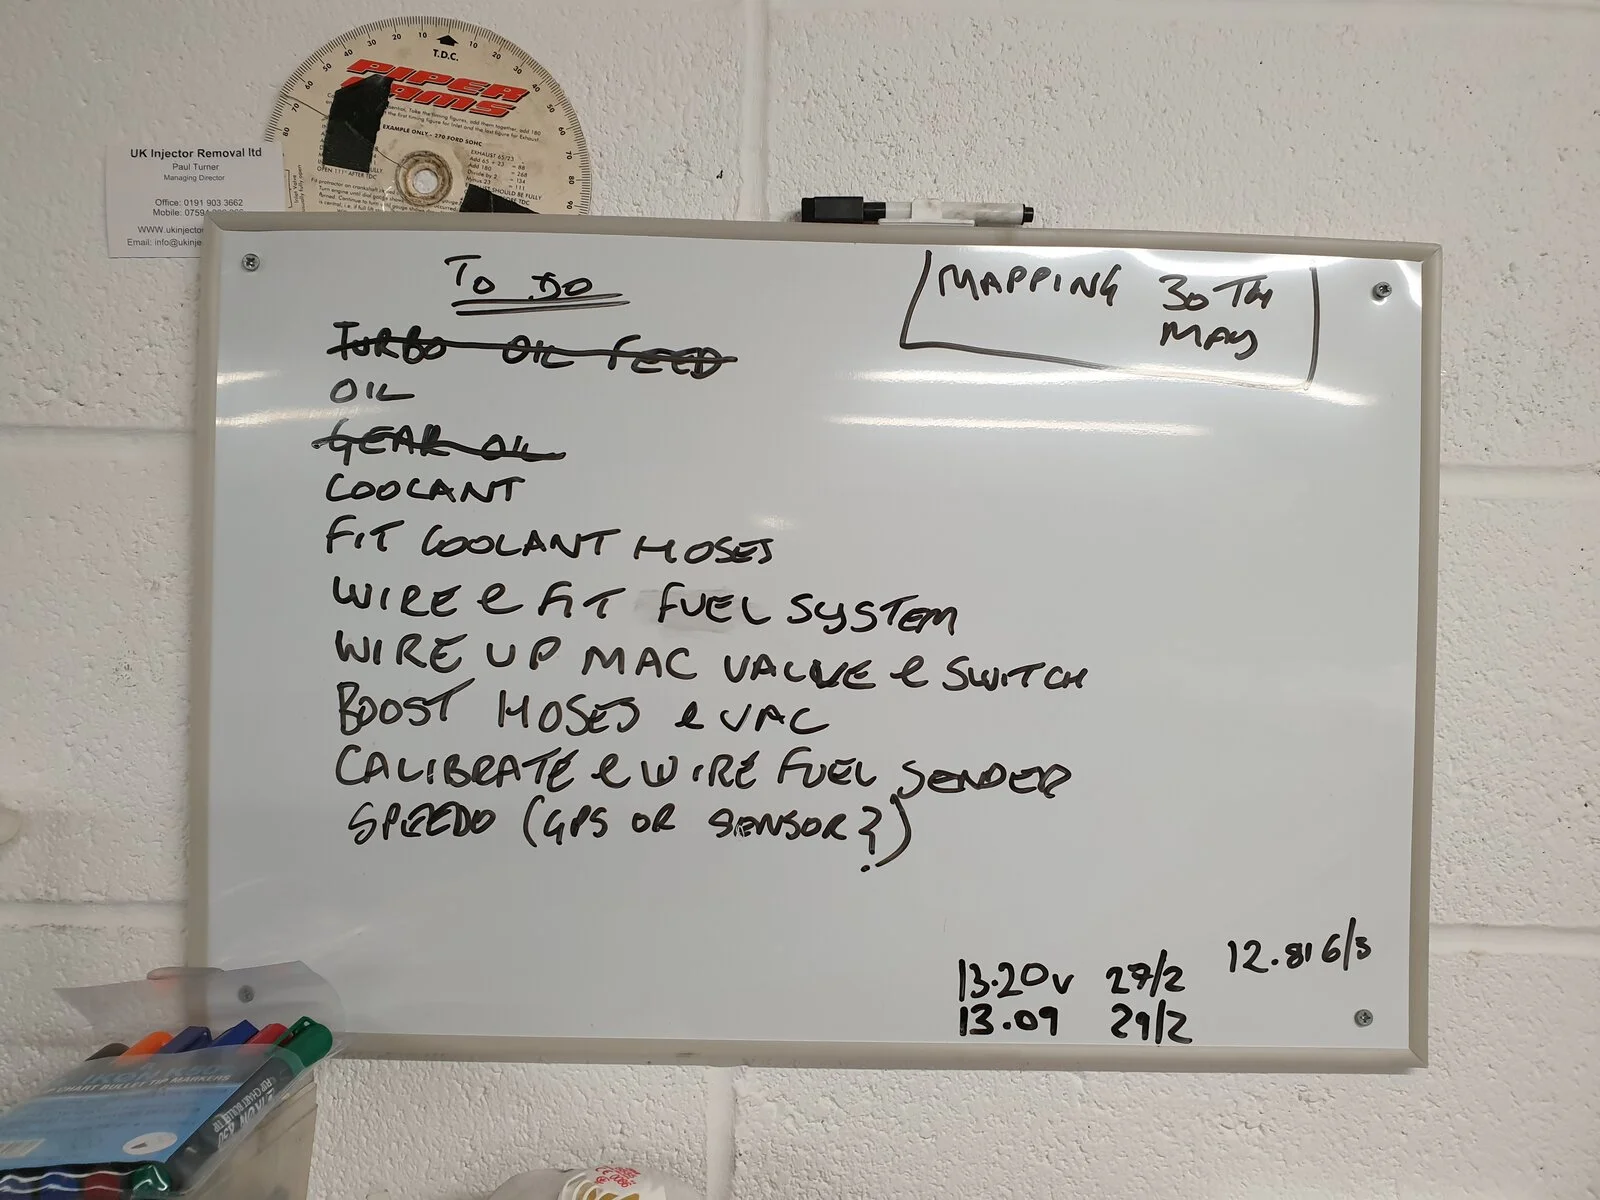 T.D.C.
PIPER
CAMS
EXAMPLE ONLY - 270 FORD SOHC
EXHAUST 65/23
UK Injector Removal ltd
Paul Turner
Managing Director
Office: 0191 903 3662
Mobile:
TO DO
MAPPING 30TH
MAY
TURBO OIL FEED
OIL
GEAR OIL
COOLANT
FIT COOLANT HOSES
WIRE & FIT FUEL SYSTEM
WIRE UP MAC VALVE & SWITCH
BOOST HOSES & VAC
CALIBRATE & WIRE FUEL SENDER
SPEEDO (GPS OR SENSOR?)
13.20V 27/2 12.81 6/3
13.09 29/2
CHART BULLET TIP MARKERS